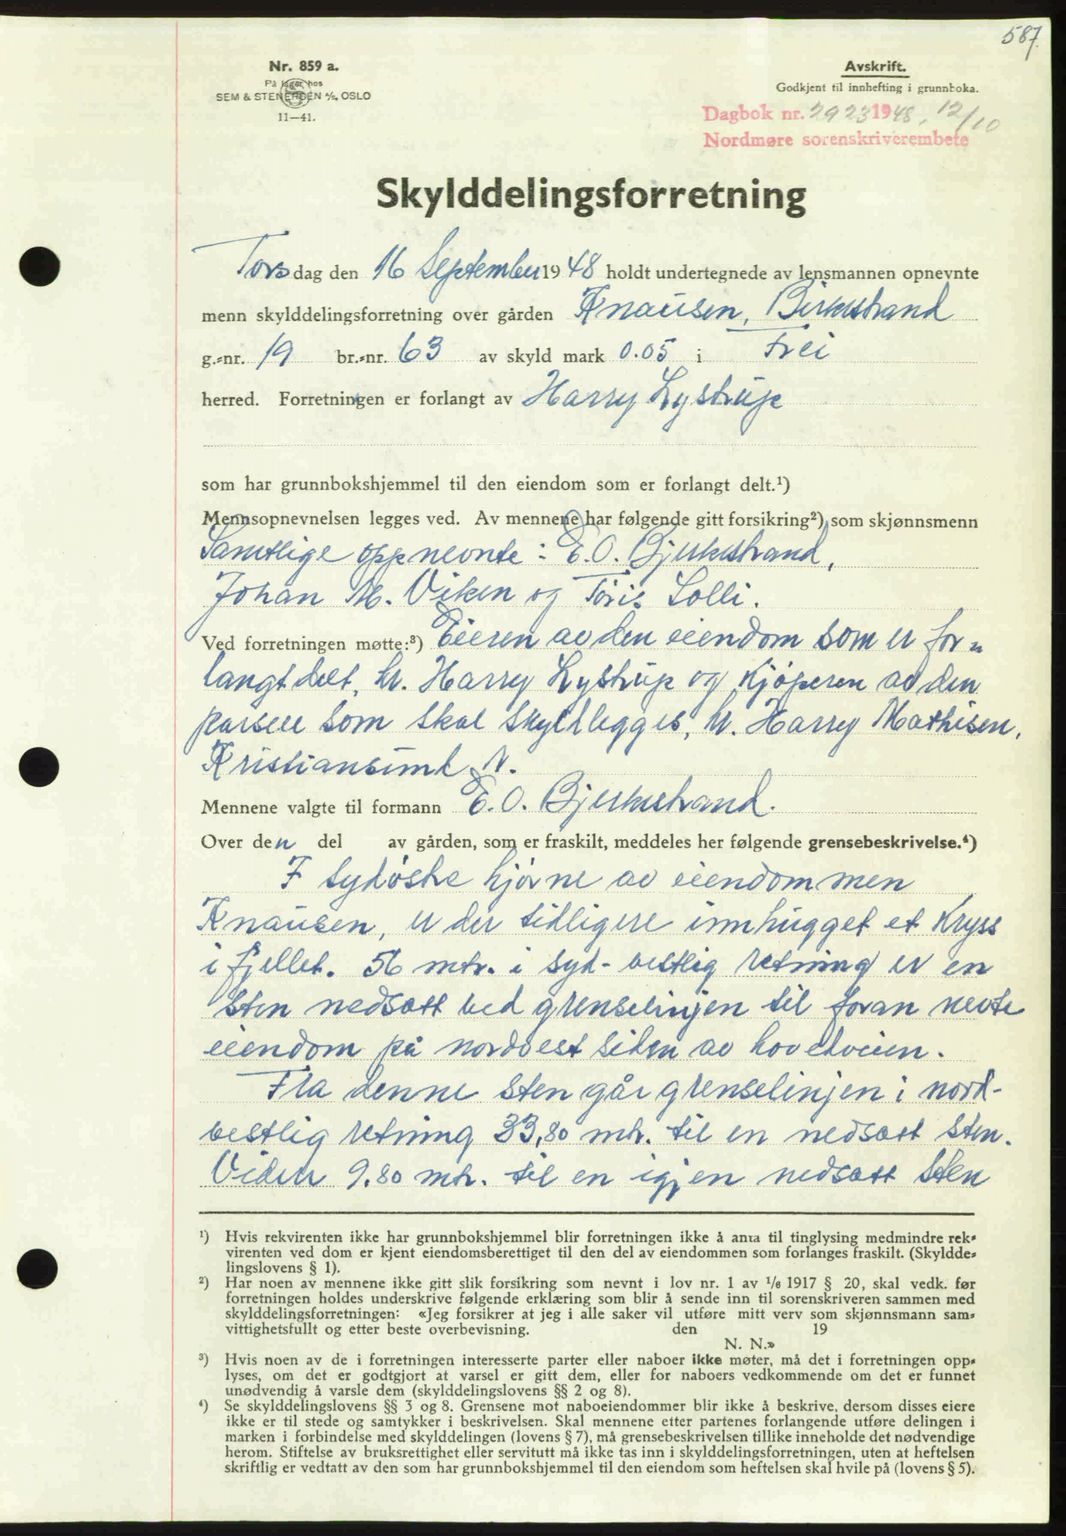 587.
Nr. 859 a.
På lager hos
SEM & STENERSEN A/S, OSLO
11—41.
Avskrift.
Godkjent til innhefting i grunnboka.
Dagbok nr. 2923 1948, 12/10
Nordmøre sorenskriverembete
Skylddelingsforretning
Torsdag den 16 September 1948 holdt undertegnede av lensmannen opnevnte
menn skylddelingsforretning over gården Knausen, Birkestrand
g.-nr. 19 br.-nr. 63 av skyld mark 0.05 i Frei
herred. Forretningen er forlangt av Harry Lystrup
som har grunnbokshjemmel til den eiendom som er forlangt delt.¹)
Mennsopnevnelsen legges ved. Av mennene har følgende gitt forsikring²) som skjønnsmenn
Samtlige oppnevnte: E. O. Bjerkestrand,
Johan M. Viken og Tøris Solli.
Ved forretningen møtte:³) Eieren av den eiendom som er for-
langt delt, hr. Harry Lystrup og kjøperen av den
parsell som skal skyldlegges, hr. Harry Mathisen,
Kristiansund N.
Mennene valgte til formann E. O. Bjerkestrand.
Over den del av gården, som er fraskilt, meddeles her følgende grensebeskrivelse.⁴)
I sydøstre hjørne av eiendommen
Knausen, er der tidligere innhugget et Kryss
i fjellet. 56 mtr. i syd-vestlig retning er en
sten nedsatt ved grenselinjen til foran nevte
eiendom på nordvest siden av hovedveien.
Fra denne sten går grenselinjen i nord-
vestlig retning 33,80 mtr. til en nedsatt sten.
Videre 9.80 mtr. til en igjen nedsatt sten
¹) Hvis rekvirenten ikke har grunnbokshjemmel blir forretningen ikke å anta til tinglysing medmindre rek-
virenten ved dom er kjent eiendomsberettiget til den del av eiendommen som forlanges fraskilt. (Skyldde-
lingslovens § 1).
²) Har noen av mennene ikke gitt slik forsikring som nevnt i lov nr. 1 av 1/6 1917 § 20, skal vedk. før
forretningen holdes underskrive følgende erklæring som blir å sende inn til sorenskriveren sammen med
skylddelingsforretningen: «Jeg forsikrer at jeg i alle saker vil utføre mitt verv som skjønnsmann sam-
vittighetsfullt og etter beste overbevisning. den 19
N. N.»
³) Hvis noen av de i forretningen interesserte parter eller naboer ikke møter, må det i forretningen opp-
lyses, om det er godtgjort at varsel er gitt dem, eller for naboers vedkommende om det er funnet
unødvendig å varsle dem (skylddelingslovens §§ 2 og 8).
⁴) Se skylddelingslovens §§ 3 og 8. Grensene mot naboeiendommer blir ikke å beskrive, dersom disses eiere
ikke er til stede og samtykker i beskrivelsen. Skal mennene etter partenes forlangende utføre delingen i
marken i forbindelse med skylddelingen (lovens § 7), må grensebeskrivelsen tillike inneholde det nødvendige
herom. Stiftelse av bruksrettighet eller servitutt må ikke tas inn i skylddelingsforretningen, uten at heftelsen
skriftlig er vedtatt av den som har grunnbokshjemmel til den eiendom som heftelsen skal hvile på (lovens § 5).